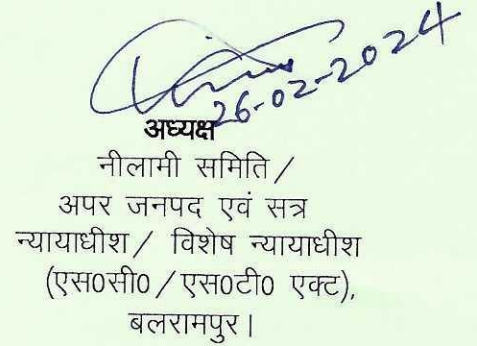 26-02-2024
अध्यक्ष
नीलामी समिति /
अपर जनपद एवं सत्र
न्यायाधीश / विशेष न्यायाधीश
(एस0सी0 / एस0टी0 एक्ट),
बलरामपुर।